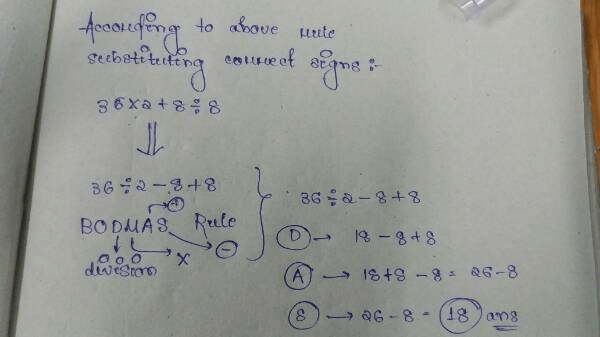 According to above rule
substituting correct signs :-
36 × 2 + 8 ÷ 8
⇓
36 ÷ 2 - 8 + 8
+
BODMAS Rule
division × -
36 ÷ 2 - 8 + 8
D → 18 - 8 + 8
A → 18 + 8 - 8 = 26 - 8
S → 26 - 8 = 18 ans